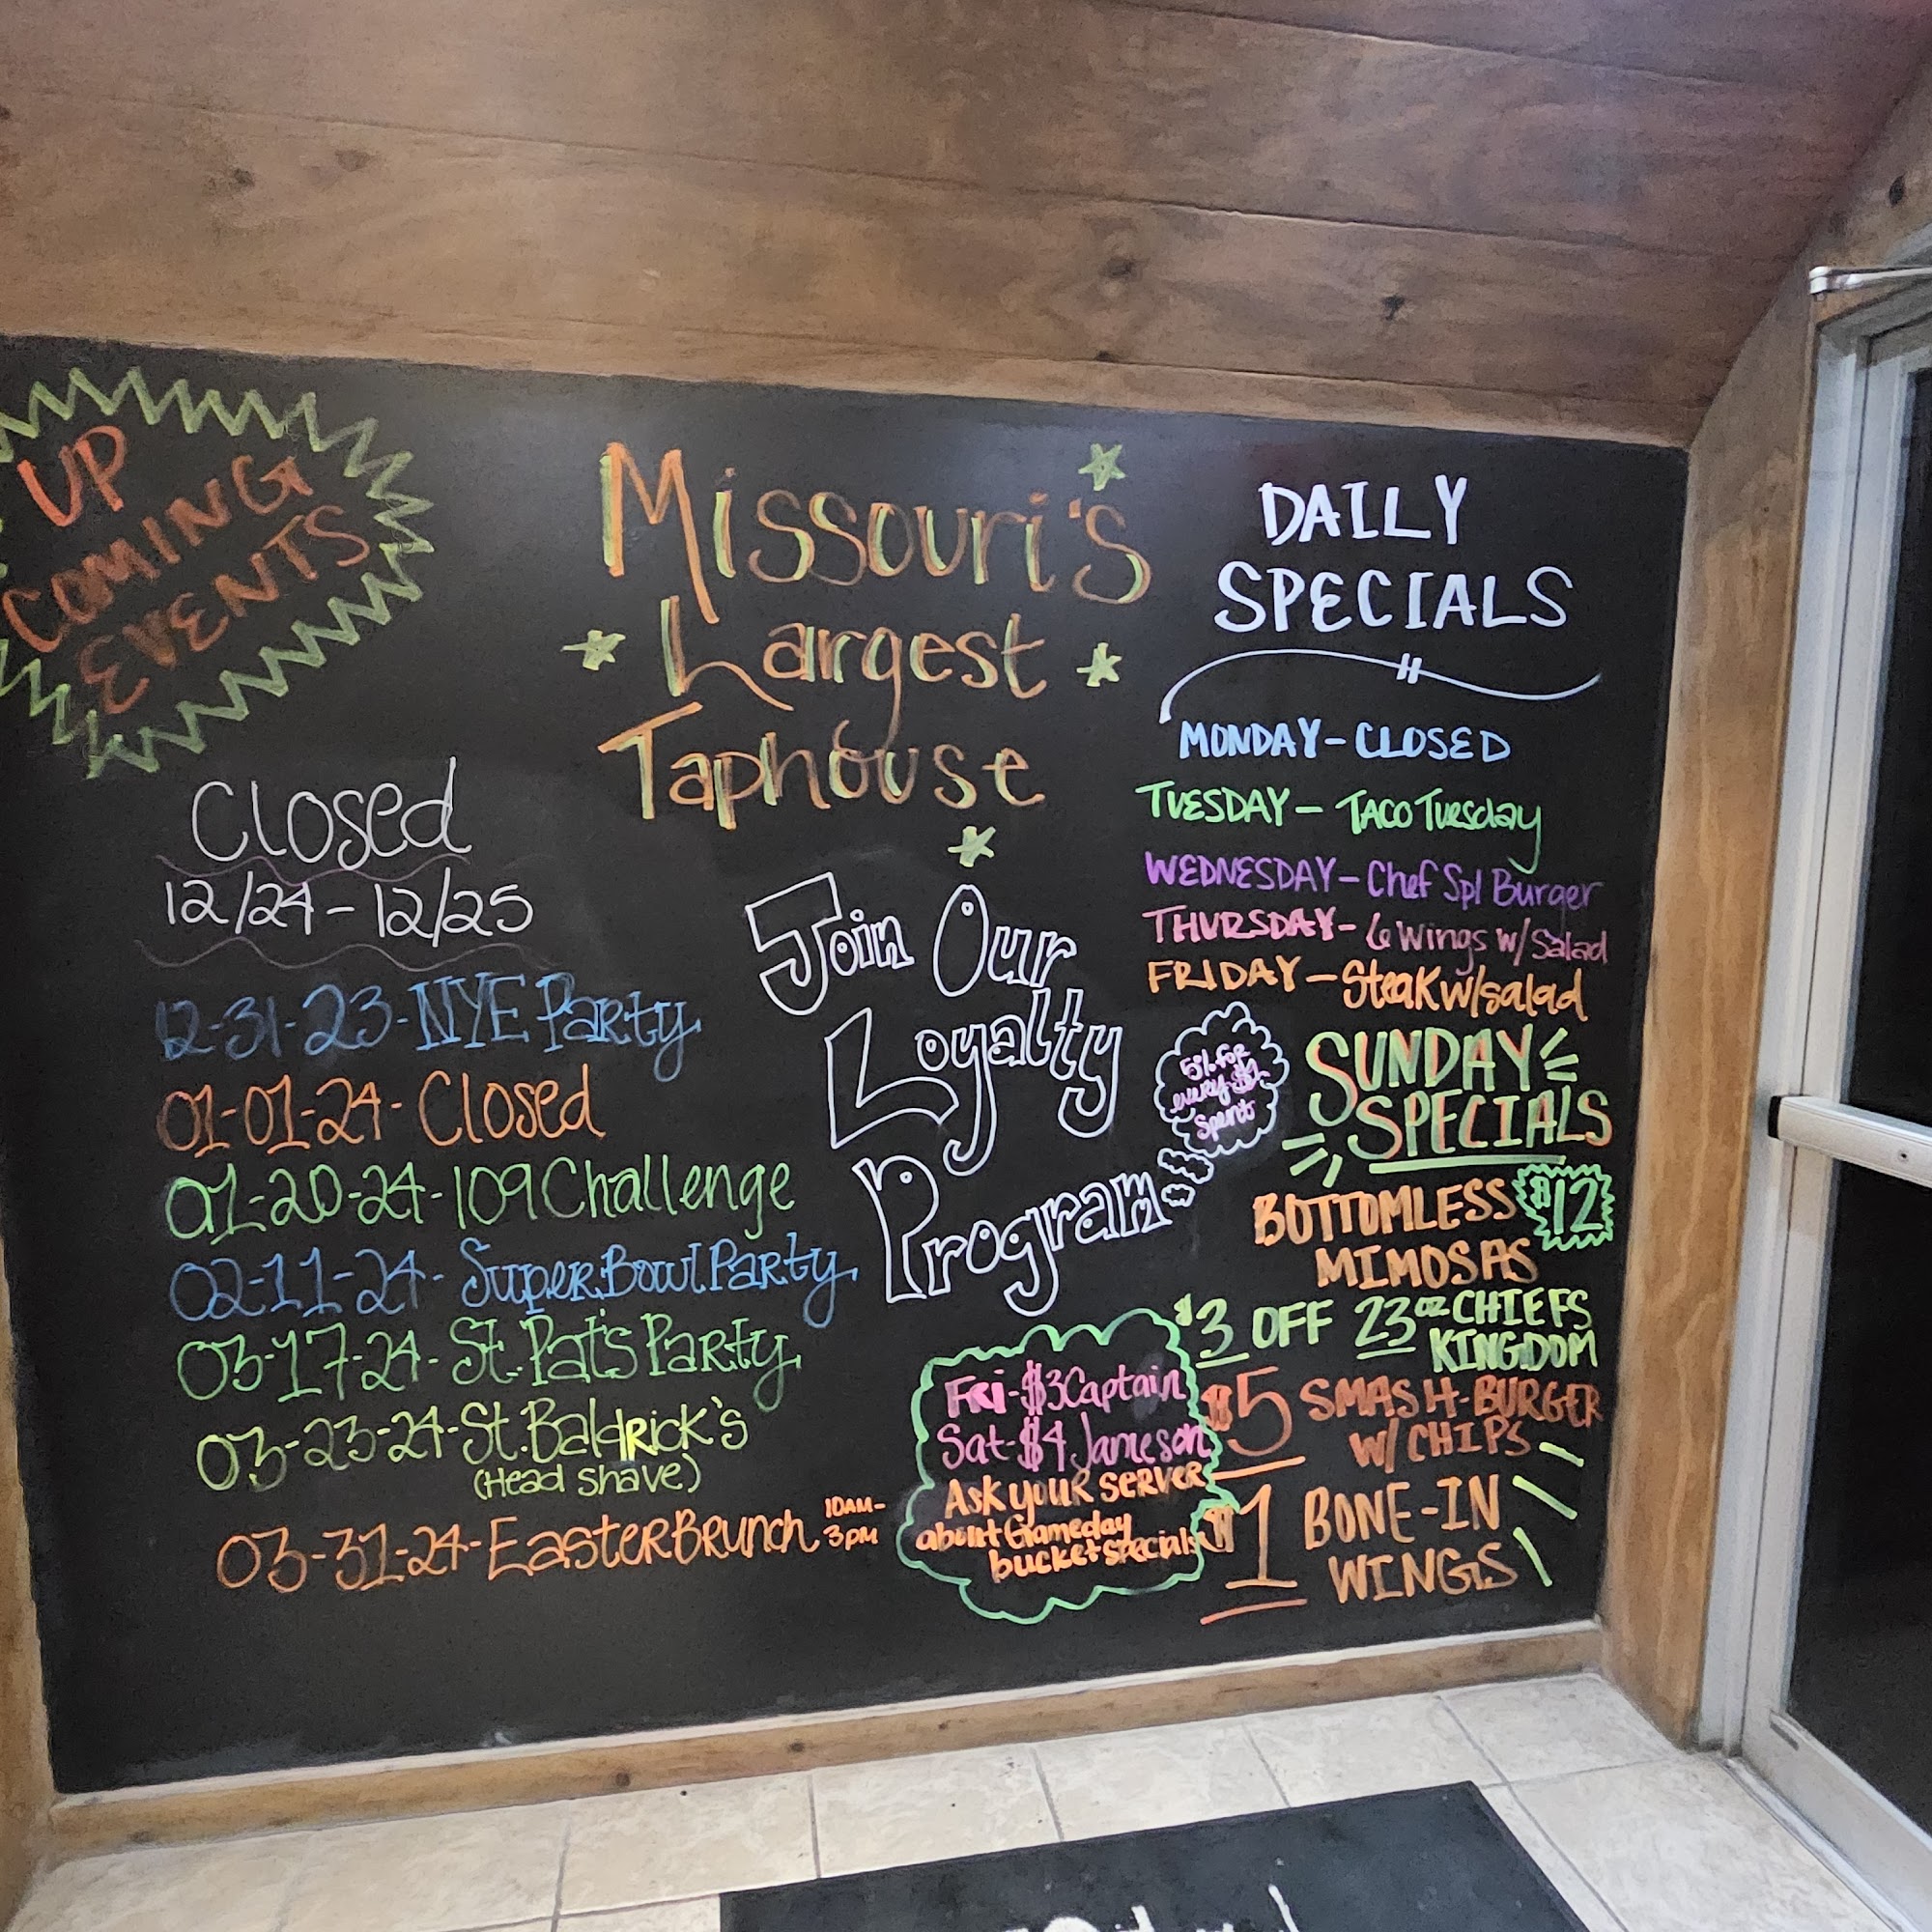 UP
COMING
EVENTS
Closed
12/24 - 12/25
12-31-23-NYE Party
01-01-24- Closed
01-20-24-109 Challenge
02-11-24- Super Bowl Party
03-17-24- St. Pat's Party
03-23-24-St. Baldrick's
(Head Shave)
03-31-24-Easter Brunch 10AM-
3PM
Missouri's
Largest
Taphouse
Join Our
Loyalty
Program
5% for
every $1
Spent
Fri-$3 Captain
Sat-$4 Jameson
Ask your server
about Gameday
bucket specials
DAILY
SPECIALS
MONDAY - CLOSED
TUESDAY - TACO Tuesday
WEDNESDAY - Chef Spl Burger
THURSDAY - 6 Wings w/ Salad
FRIDAY - Steak w/salad
SUNDAY
SPECIALS
BOTTOMLESS $12
MIMOSAS
$3 OFF 23oz CHIEFS
KINGDOM
$5 SMASH-BURGER
W/ CHIPS
$1 BONE-IN
WINGS